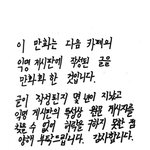 이 만화는 다음 카페의
익명 게시판에 작성된 글을
만화화 한 것입니다.
글이 작성된지 몇 년이 지났고
익명 게시판의 특성상 원문 게시자를
찾을 수 없어 허락을 구하지 못한 점
양해 부탁드립니다. 감사합니다.